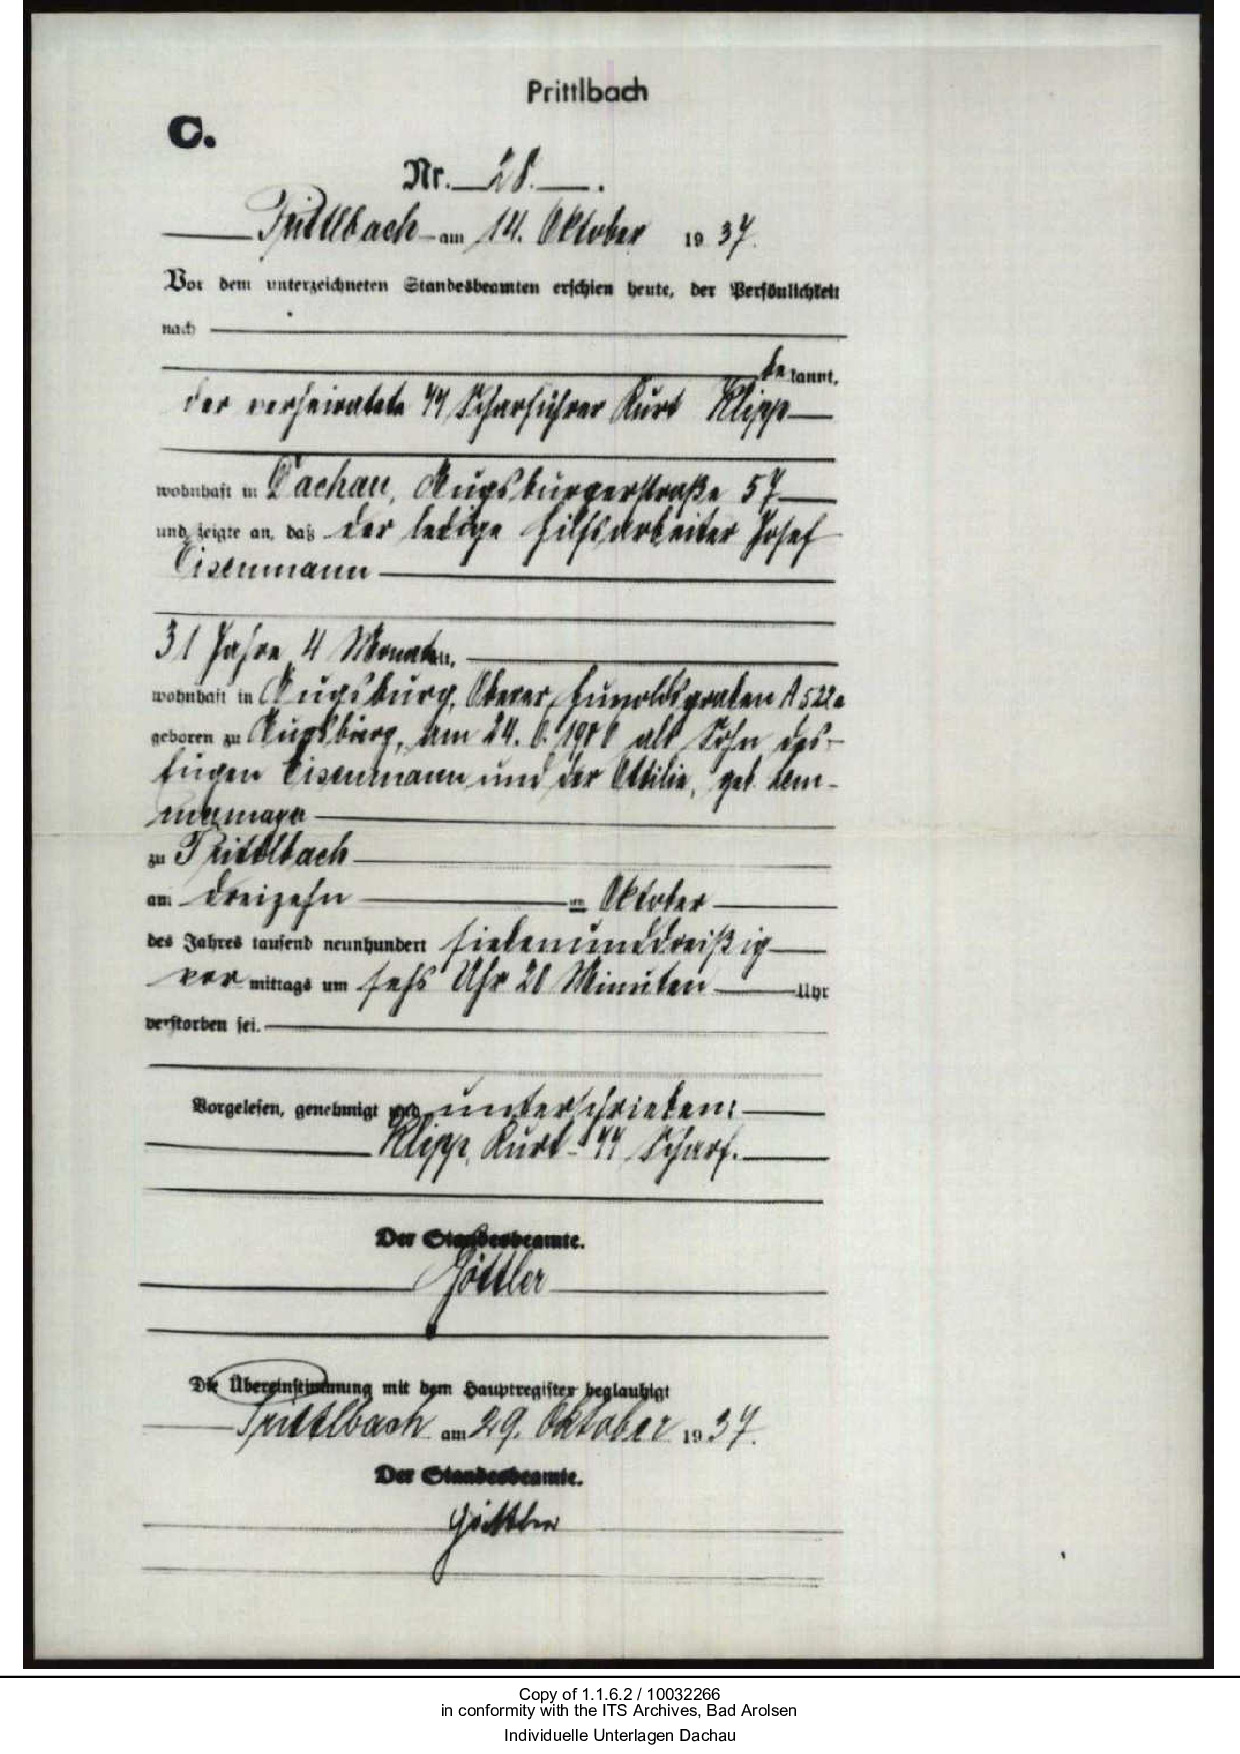 Prittlbach
C.
Nr. 28.
Prittlbach am 14. Oktober 1937.
Vor dem unterzeichneten Standesbeamten erschien heute, der Persönlichkeit
nach
bekannt,
der verheiratete SS Scharführer Kurt Klipp
wohnhaft in Dachau, Augsburgerstraße 57
und zeigte an, daß der ledige Hilfsarbeiter Josef
Eisenmann
31 Jahre 4 Monate
wohnhaft in Augsburg, Oberer Hunoldsgraben A 522a
geboren zu Augsburg, am 24. 6. 1906 als Sohn des
Eugen Eisenmann und der Ottilie, geb.
zu Prittlbach
am dreizehn Oktober
des Jahres tausend neunhundert siebenunddreißig
vor mittags um sechs Uhr 20 Minuten Uhr
verstorben sei.
Vorgelesen, genehmigt und unterschrieben:
Klipp, Kurt SS Scharf.
Der Standesbeamte.
Göttler
Die Übereinstimmung mit dem Hauptregister beglaubigt
Prittlbach am 29. Oktober 1937.
Der Standesbeamte.
Göttler
Copy of 1.1.6.2 / 10032266
in conformity with the ITS Archives, Bad Arolsen
Individuelle Unterlagen Dachau